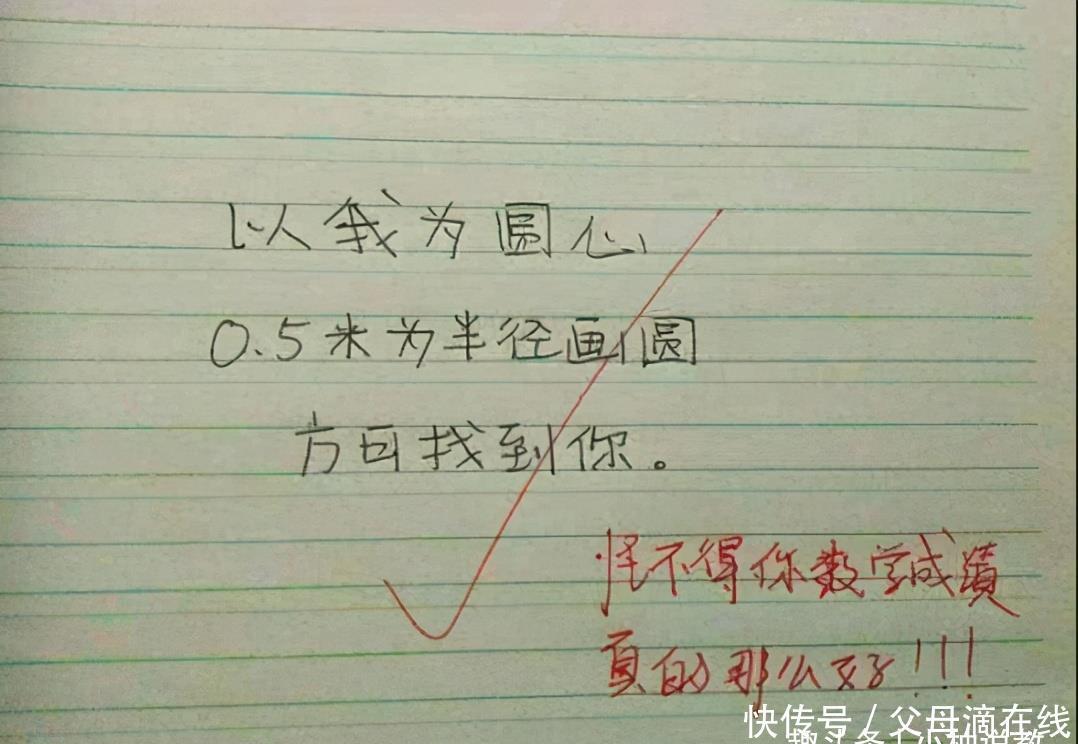 以我为圆心
0.5米为半径画圆
方可找到你。
怪不得你数学成蹟
真的那么好!!!
快传号/父母滴在线